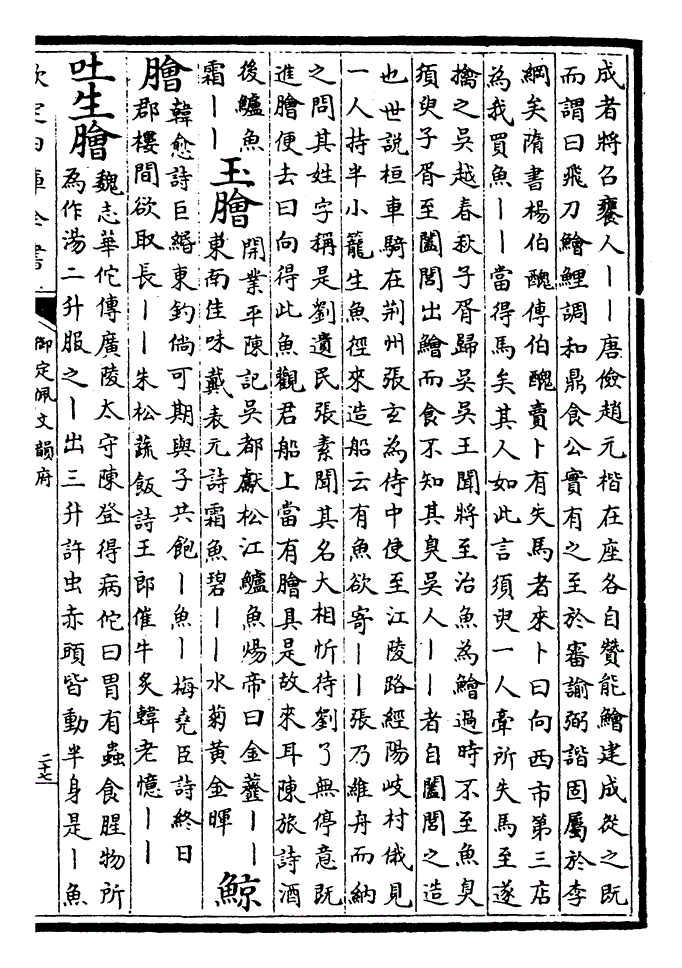 成者將召饔人丨丨唐儉趙元楷在座各自贊能鱠建成從之既
而謂曰飛刀鱠鯉調和鼎食公實有之至於審諭弼諧固屬於李
綱矣隋書楊伯醜傳伯醜賣卜有失馬者來卜曰向西市第三店
為我買魚丨丨當得馬矣其人如此言須臾一人牽所失馬至遂
擒之吳越春秋子胥歸吳吳王聞將至治魚為鱠過時不至魚臭
須臾子胥至闔閭出鱠而食不知其臭吳人丨丨者自闔閭之造
也世說桓車騎在荆州張玄為侍中使至江陵路經陽岐村俄見
一人持半小籠生魚徑來造船云有魚欲寄丨丨張乃維舟而納
之問其姓字稱是劉遺民張素聞其名大相忻待劉了無停意既
進膾便去曰向得此魚觀君船上當有膾具是故來耳陳旅詩酒
後鱸魚
霜丨丨
玉膾
開業平陳記吳都獻松江鱸魚煬帝曰金虀丨丨
東南佳味戴表元詩霜魚碧丨丨水菊黃金暉
鯨
膾
韓愈詩巨緡東釣倘可期與子共飽丨魚丨梅堯臣詩終日
郡樓間欲取長丨丨朱松蔬飯詩王郎催牛炙韓老憶丨丨
吐生膾
魏志華佗傳廣陵太守陳登得病佗曰胃有蟲食腥物所
為作湯二升服之丨出三升許虫赤頭皆動半身是丨魚
欽定四庫全書
御定佩文韻府
二十七